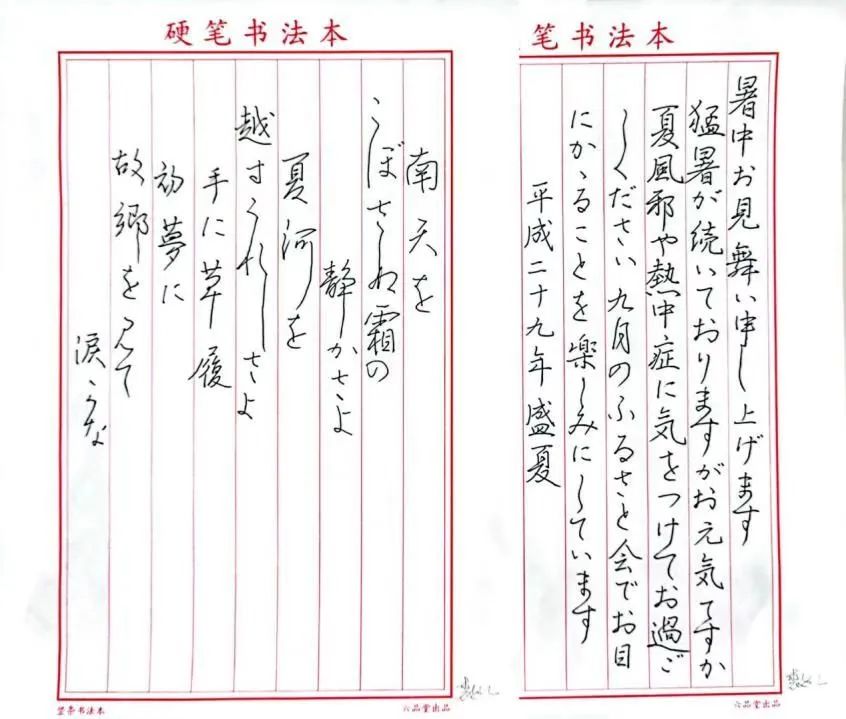 硬笔书法本
南天を
こぼさぬ霜の
静かさよ
夏河を
越すうれしさよ
手に草履
初夢に
故郷を見て
涙かな
竖条书法本
六品堂出品
笔书法本
暑中お見舞い申し上げます
猛暑が続いておりますがお元気ですか
夏風邪や熱中症に気をつけてお過ご
しください 九月のふるさと会でお目
にかゝることを楽しみにしています
平成二十九年盛夏
六品堂出品